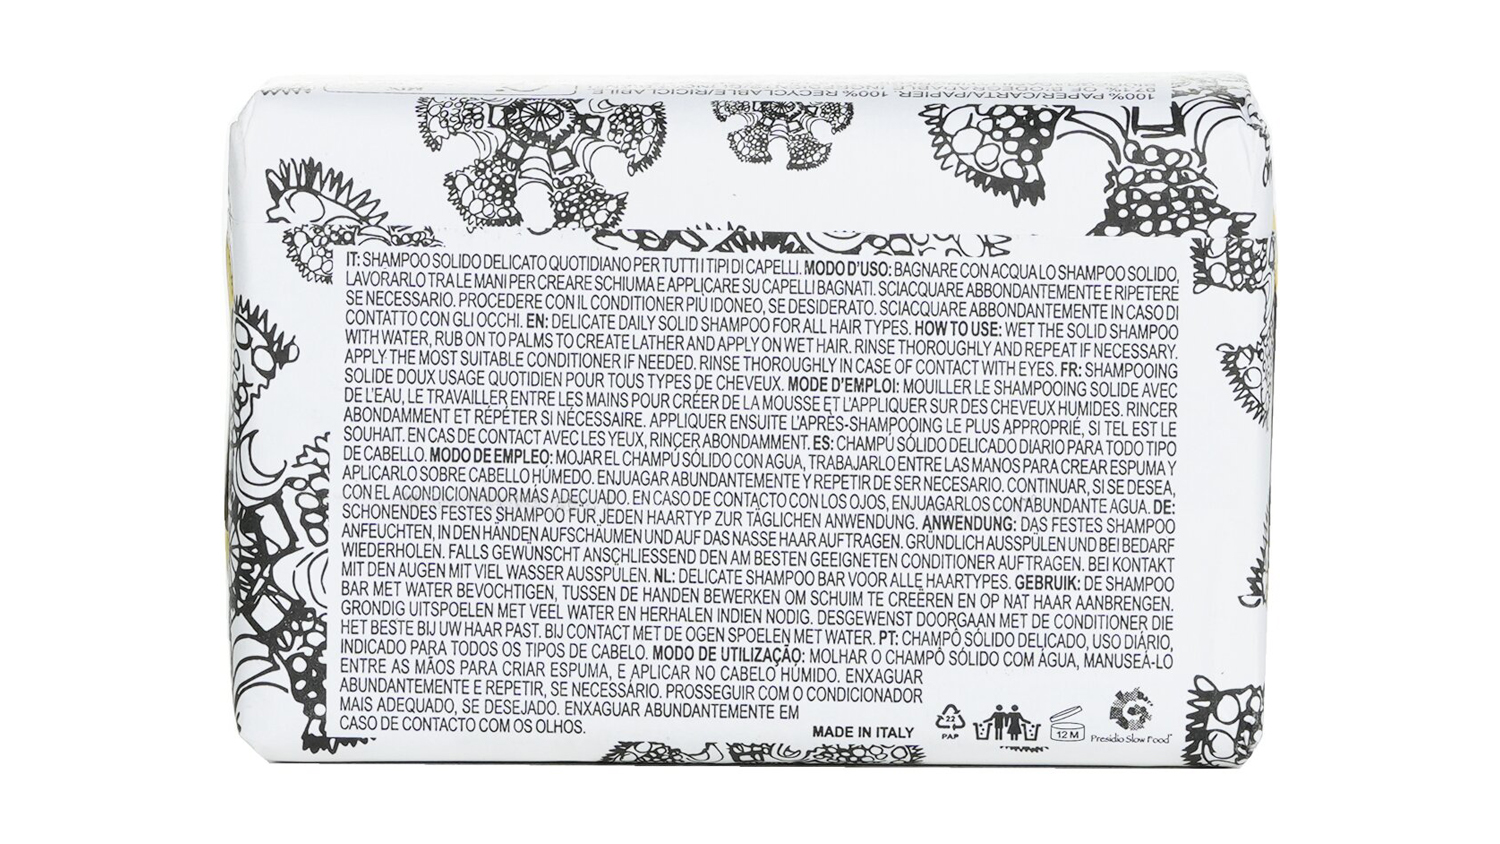 100% PAPER/CARTA/PAPIER 100% RECYCLABLE/RICICLABILE
IT: SHAMPOO SOLIDO DELICATO QUOTIDIANO PER TUTTI I TIPI DI CAPELLI. MODO D'USO: BAGNARE CON ACQUA LO SHAMPOO SOLIDO,
LAVORARLO TRA LE MANI PER CREARE SCHIUMA E APPLICARE SU CAPELLI BAGNATI. SCIACQUARE ABBONDANTEMENTE E RIPETERE
SE NECESSARIO. PROCEDERE CON IL CONDITIONER PIÙ IDONEO, SE DESIDERATO. SCIACQUARE ABBONDANTEMENTE IN CASO DI
CONTATTO CON GLI OCCHI. EN: DELICATE DAILY SOLID SHAMPOO FOR ALL HAIR TYPES. HOW TO USE: WET THE SOLID SHAMPOO
WITH WATER, RUB ON TO PALMS TO CREATE LATHER AND APPLY ON WET HAIR. RINSE THOROUGHLY AND REPEAT IF NECESSARY.
APPLY THE MOST SUITABLE CONDITIONER IF NEEDED. RINSE THOROUGHLY IN CASE OF CONTACT WITH EYES. FR: SHAMPOOING
SOLIDE DOUX USAGE QUOTIDIEN POUR TOUS TYPES DE CHEVEUX. MODE D'EMPLOI: MOUILLER LE SHAMPOOING SOLIDE AVEC
DE L'EAU, LE TRAVAILLER ENTRE LES MAINS POUR CRÉER DE LA MOUSSE ET L'APPLIQUER SUR DES CHEVEUX HUMIDES. RINCER
ABONDAMMENT ET RÉPÉTER SI NÉCESSAIRE. APPLIQUER ENSUITE L'APRÈS-SHAMPOOING LE PLUS APPROPRIÉ, SI TEL EST LE
SOUHAIT. EN CAS DE CONTACT AVEC LES YEUX, RINCER ABONDAMMENT. ES: CHAMPÚ SÓLIDO DELICADO DIARIO PARA TODO TIPO
DE CABELLO. MODO DE EMPLEO: MOJAR EL CHAMPÚ SÓLIDO CON AGUA, TRABAJARLO ENTRE LAS MANOS PARA CREAR ESPUMA Y
APLICARLO SOBRE CABELLO HÚMEDO. ENJUAGAR ABUNDANTEMENTE Y REPETIR DE SER NECESARIO. CONTINUAR, SI SE DESEA,
CON EL ACONDICIONADOR MÁS ADECUADO. EN CASO DE CONTACTO CON LOS OJOS, ENJUAGARLOS CON ABUNDANTE AGUA. DE:
SCHONENDES FESTES SHAMPOO FÜR JEDEN HAARTYP ZUR TÄGLICHEN ANWENDUNG. ANWENDUNG: DAS FESTES SHAMPOO
ANFEUCHTEN, IN DEN HÄNDEN AUFSCHÄUMEN UND AUF DAS NASSE HAAR AUFTRAGEN. GRÜNDLICH AUSSPÜLEN UND BEI BEDARF
WIEDERHOLEN. FALLS GEWÜNSCHT ANSCHLIESSEND DEN AM BESTEN GEEIGNETEN CONDITIONER AUFTRAGEN. BEI KONTAKT
MIT DEN AUGEN MIT VIEL WASSER AUSSPÜLEN. NL: DELICATE SHAMPOO BAR VOOR ALLE HAARTYPES. GEBRUIK: DE SHAMPOO
BAR MET WATER BEVOCHTIGEN, TUSSEN DE HANDEN BEWERKEN OM SCHUIM TE CREËREN EN OP NAT HAAR AANBRENGEN.
GRONDIG UITSPOELEN MET VEEL WATER EN HERHALEN INDIEN NODIG. DESGEWENST DOORGAAN MET DE CONDITIONER DIE
HET BESTE BIJ UW HAAR PAST. BIJ CONTACT MET DE OGEN SPOELEN MET WATER. PT: CHAMPÔ SÓLIDO DELICADO, USO DIÁRIO,
INDICADO PARA TODOS OS TIPOS DE CABELO. MODO DE UTILIZAÇÃO: MOLHAR O CHAMPÔ SÓLIDO COM ÁGUA, MANUSEÁ-LO
ENTRE AS MÃOS PARA CRIAR ESPUMA, E APLICAR NO CABELO HÚMIDO. ENXAGUAR
ABUNDANTEMENTE E REPETIR, SE NECESSÁRIO. PROSSEGUIR COM O CONDICIONADOR
MAIS ADEQUADO, SE DESEJADO. ENXAGUAR ABUNDANTEMENTE EM
CASO DE CONTACTO COM OS OLHOS.
MADE IN ITALY
22
PAP
12 M
Presidio Slow Food